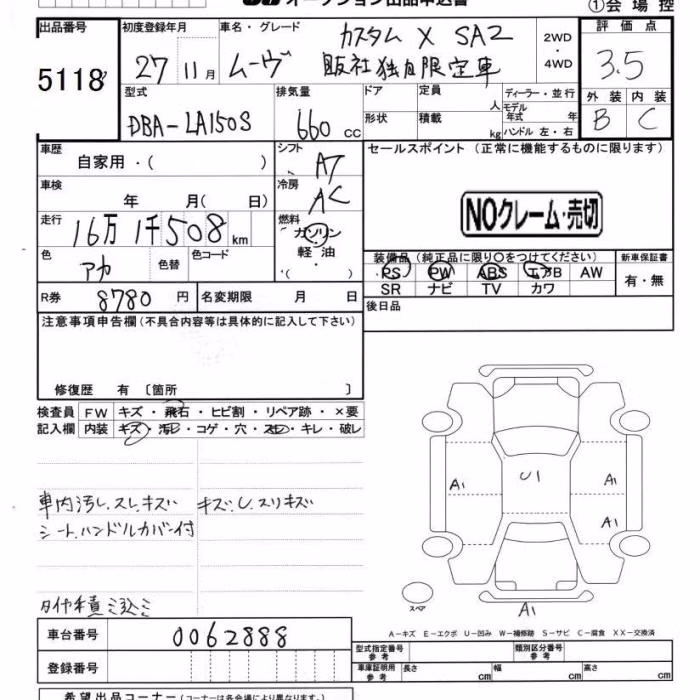 オークション出品申込書
①会場控
出品番号
5118
初度登録年月
27 11月
車名・グレード
ムーヴ
カスタム X SA2
販社独自限定車
2WD
・
4WD
評価点
3.5
外装 内装
B C
型式
DBA-LA150S
排気量
660 cc
ドア
定員 人
形状
積載 kg
ディーラー・並行
モデル年式 年
ハンドル 左・右
車歴
自家用・( )
シフト
AT
車検
年 月( 日)
冷房
AC
走行
16万1千508km
燃料
ガソリン
軽油
・( )
色
アカ
色替
色コード
R券
8780 円
名変期限 月 日
セールスポイント (正常に機能するものに限ります)
NOクレーム・売切
装備品 (純正品に限り○をつけてください)
PS PW ABS エアB AW
SR ナビ TV カワ
新車保証書
有・無
後日品
注意事項申告欄 (不具合内容等は具体的に記入して下さい)
修復歴 有 〔箇所 〕
検査員記入欄
FW キズ・飛石・ヒビ割・リペア跡・×要
内装 キズ・汚レ・コゲ・穴・スレ・キレ・破レ
車内汚し、スレ、キズ
シート、ハンドルカバー付
キズ、U、スリキズ
タイヤ積ミ込ミ
A1
U1
A1
A1
A1
スペア
A-キズ E-エクボ U-凹み W-補修跡 S-サビ C-腐食 XX-交換済
車台番号
0062888
登録番号
型式指定番号
参考
類別区分番号
参考
車庫証明用
参考
長さ cm
幅 cm
高さ cm
希望出品コーナー (コーナーは各会場により異なります)